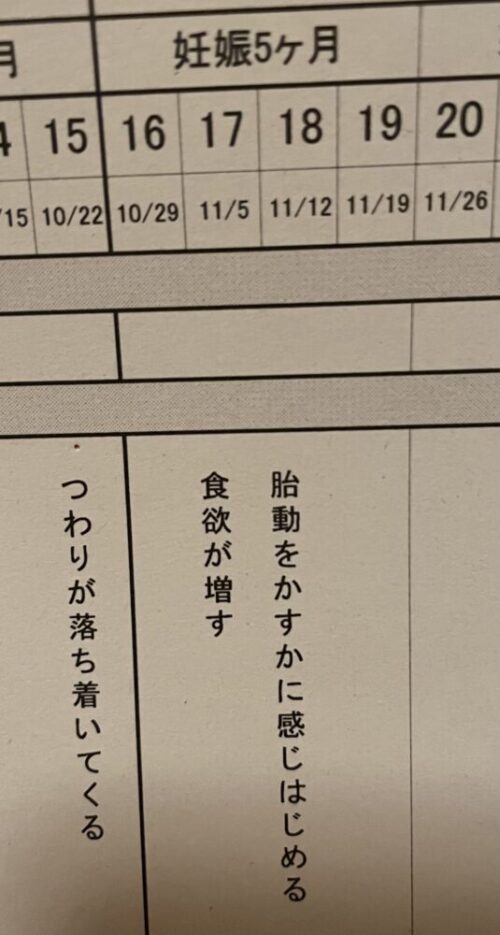 月 妊娠5ヶ月
4 15 16 17 18 19 20
/15 10/22 10/29 11/5 11/12 11/19 11/26
胎動をかすかに感じはじめる
食欲が増す
つわりが落ち着いてくる